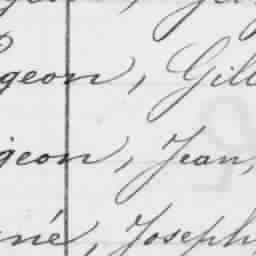 geon, Gill
geon, Jean,
né, Joseph